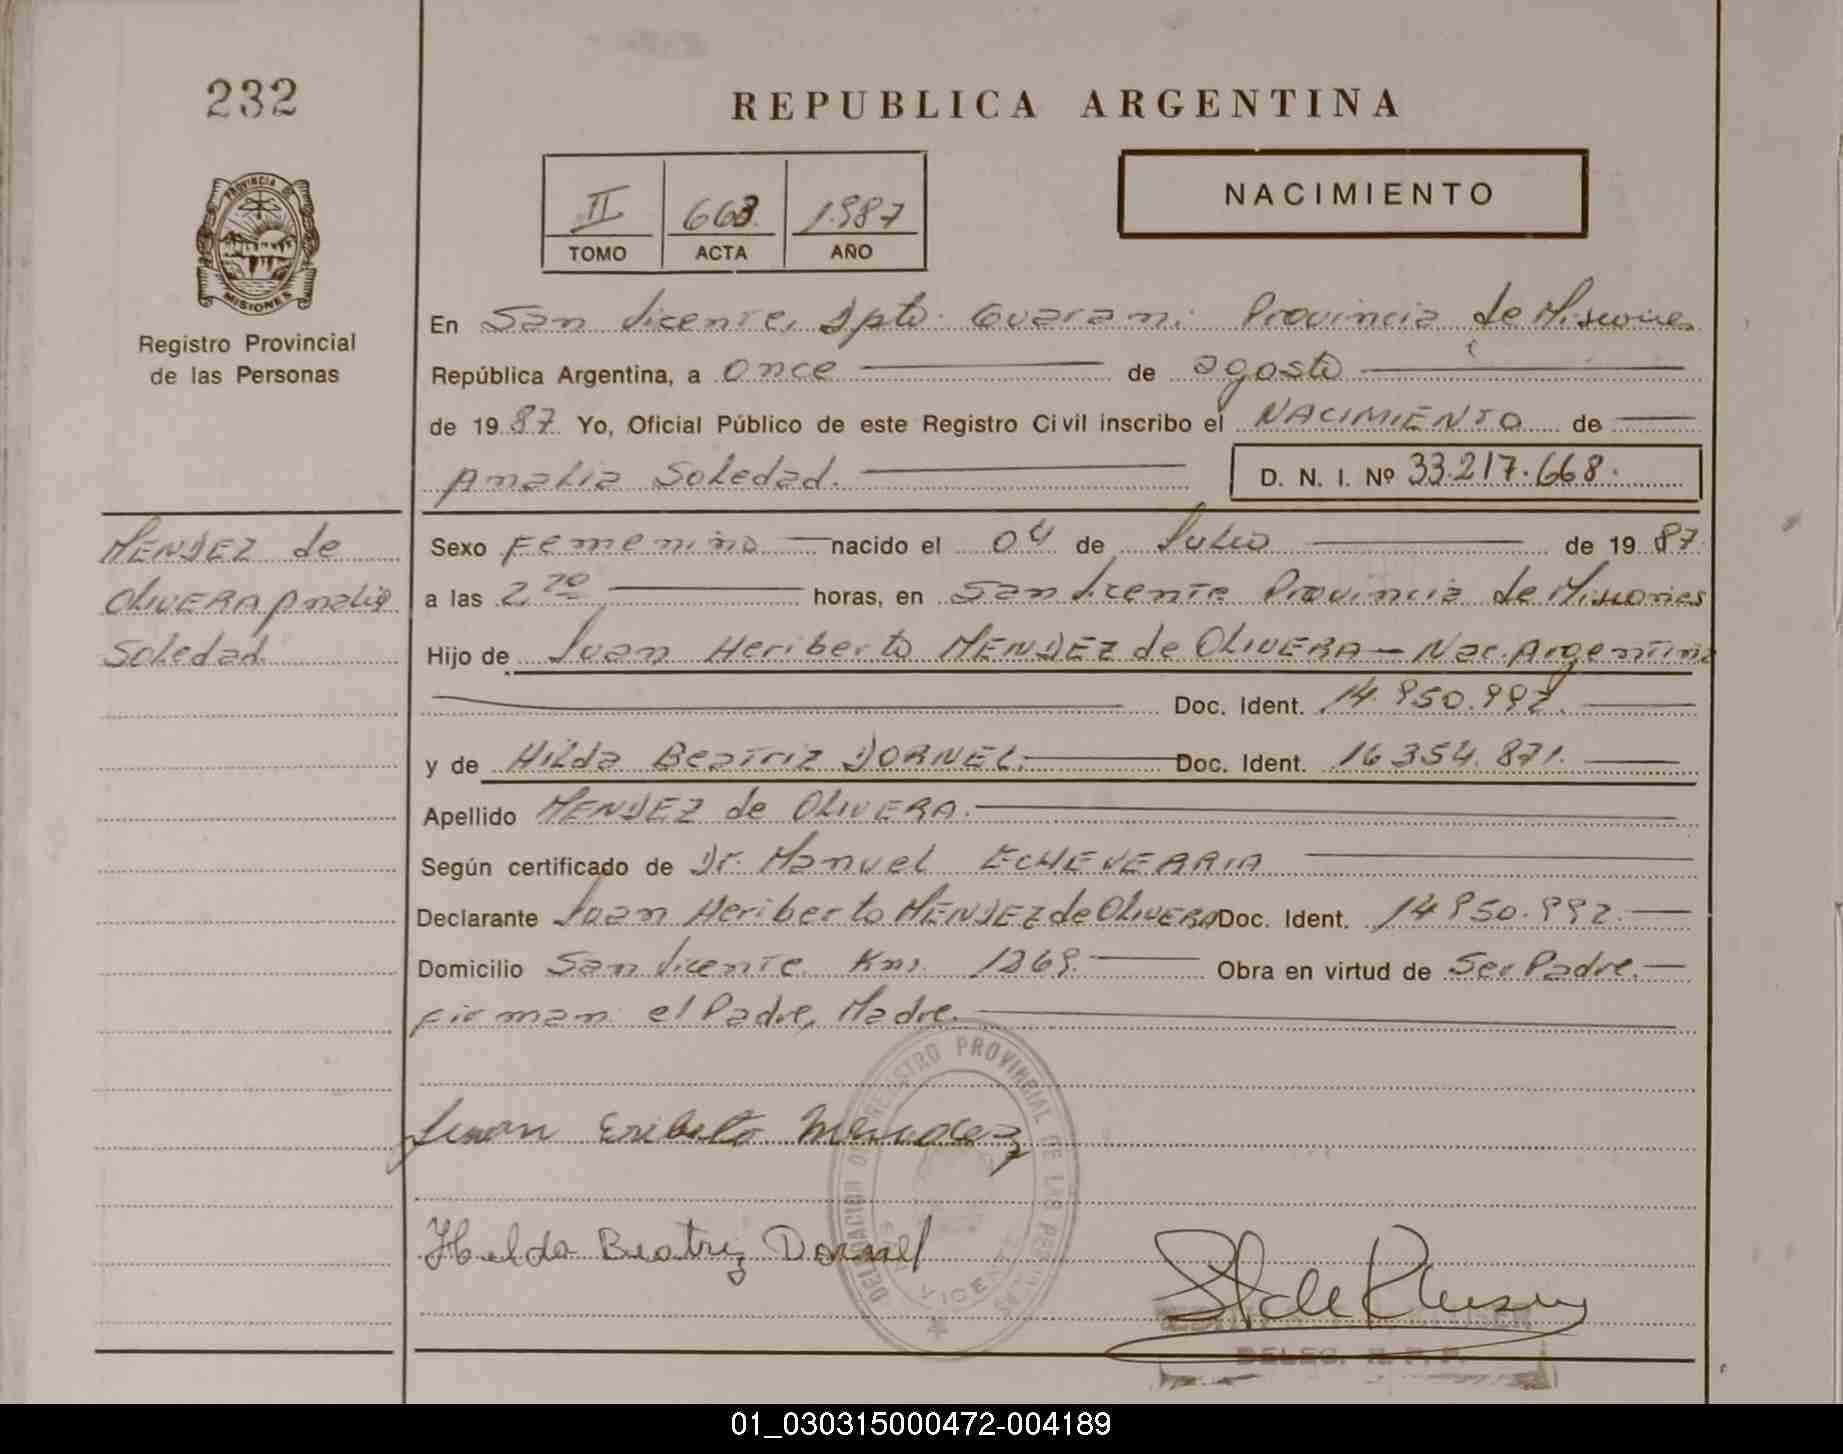 232
REPUBLICA ARGENTINA
II 663 1987
TOMO ACTA AÑO
NACIMIENTO
PROVINCIA DE MISIONES
Registro Provincial
de las Personas
En San Vicente, Dpto. Guarani Provincia de Misiones
República Argentina, a once de agosto
de 19 87 Yo, Oficial Público de este Registro Civil inscribo el NACIMIENTO de
Amalia Soledad. D. N. I. Nº 33.217.668.
MENDEZ de
OLIVERA Amalia
Soledad
Sexo Femenino nacido el 04 de Julio de 19 87
a las 2 20 horas, en San Vicente Provincia de Misiones
Hijo de Juan Heriberto MENDEZ de OLIVERA — Nac. Argentina
Doc. Ident. 14.950.992.
y de Hilda Beatriz DORNEL. Doc. Ident. 16.354.871.
Apellido MENDEZ de OLIVERA.
Según certificado de Dr. Manuel ECHEVERRIA
Declarante Juan Heriberto MENDEZ de OLIVERA Doc. Ident. 14.950.992.
Domicilio San Vicente Km. 1269. Obra en virtud de Ser Padre.
Firman: el Padre, Madre.
Juan Eriberto Mendez
Hilda Beatriz Dornel
DELEGACION DEL REGISTRO PROVINCIAL DE LAS PERSONAS
SAN VICENTE
DELEG. R. P. P.
01_030315000472-004189